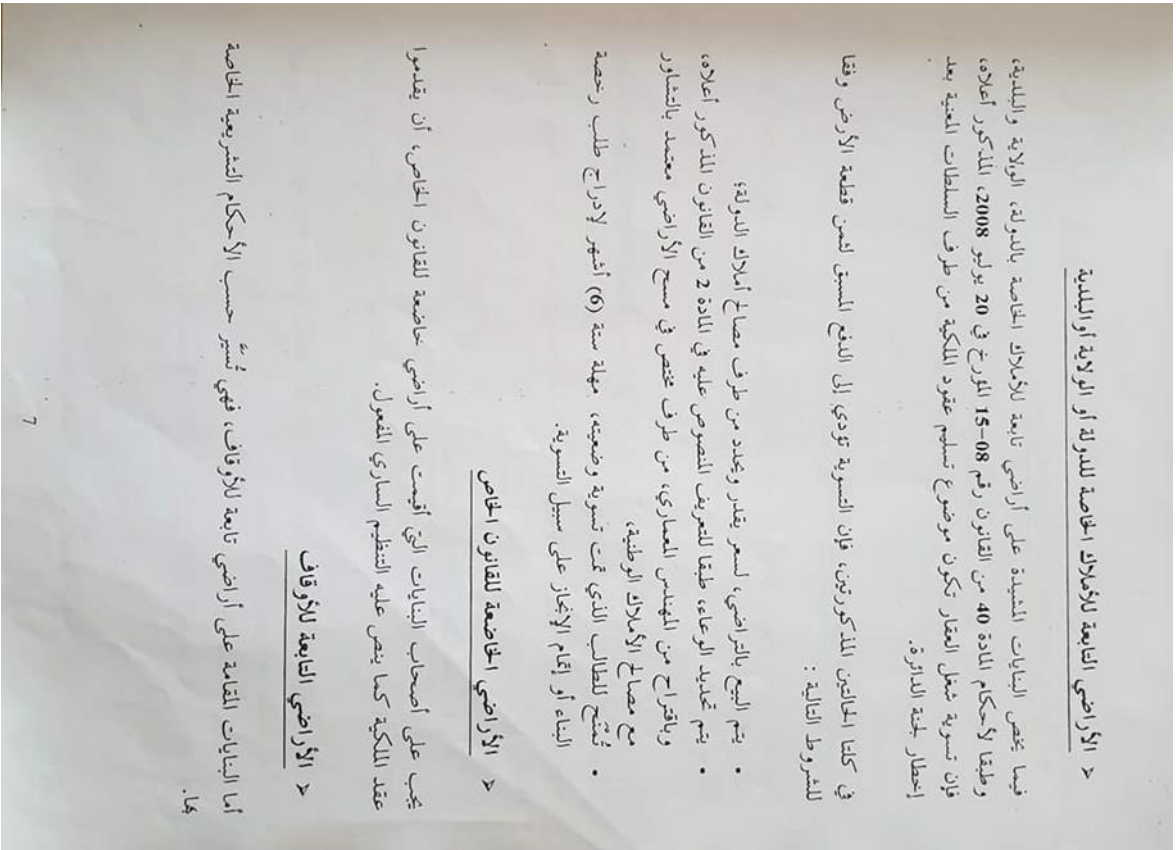 < الأراضي التابعة للأملاك الخاصة للدولة أو الولاية أو البلدية
فيما يخص البنايات المشيدة على أراضي تابعة للأملاك الخاصة بالدولة، الولاية والبلدية،
وطبقا لأحكام المادة 40 من القانون رقم 08-15 المؤرخ في 20 يوليو 2008، المذكور أعلاه،
فإن تسوية شغل العقار تكون موضوع تسليم عقود الملكية من طرف السلطات المعنية بعد
إخطار لجنة الدائرة.
في كلتا الحالتين المذكورتين، فإن التسوية تؤدي إلى الدفع المسبق لثمن قطعة الأرض وفقا
للشروط التالية :
• يتم البيع بالتراضي، لسعر يقدر ويحدد من طرف مصالح أملاك الدولة؛
• يتم تحديد الوعاء، طبقا للتعريف المنصوص عليه في المادة 2 من القانون المذكور أعلاه،
وباقتراح من المهندس المعماري، من طرف مختص في مسح الأراضي معتمد بالتشاور
مع مصالح الأملاك الوطنية،
• تُمنَح للطالب الذي تمت تسوية وضعيته، مهلة ستة (6) أشهر لإدراج طلب رخصة
البناء أو إتمام الإنجاز على سبيل التسوية.
< الأراضي الخاضعة للقانون الخاص
يجب على أصحاب البنايات التي أقيمت على أراضي خاضعة للقانون الخاص، أن يقدموا
عقد الملكية كما ينص عليه التنظيم الساري المفعول.
< الأراضي التابعة للأوقاف
أما البنايات المقامة على أراضي تابعة للأوقاف، فهي تُسيَّر حسب الأحكام التشريعية الخاصة
بها.
7